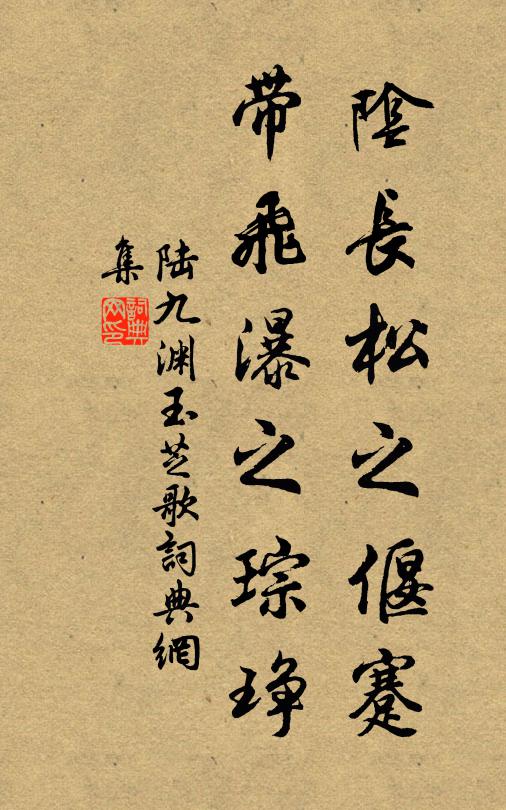 陰長松之偃蹇
带飛瀑之琮琤
陆九渊玉芝歌詞典網
集
詞典網印